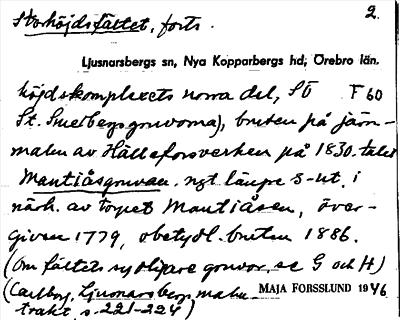 Storhöjdsfältet, forts. 2.
Ljusnarsbergs sn, Nya Kopparbergs hd, Örebro län.
höjdskomplexets norra del, SÖ F 60
St. Smedbergsgruvorna), bruten på järn-
malm av Hälleforsverken på 1830-talet
Mantiåsgruvan. ngt längre S-ut, i
närh. av torpet Mantiåsen, över-
given 1779, obetydl. bruten 1886.
(Om fältets sydligare gruvor se G och H)
(Carlborg, Ljusnarsbergs malm-
trakt s. 221-224) MAJA FORSSLUND 1946